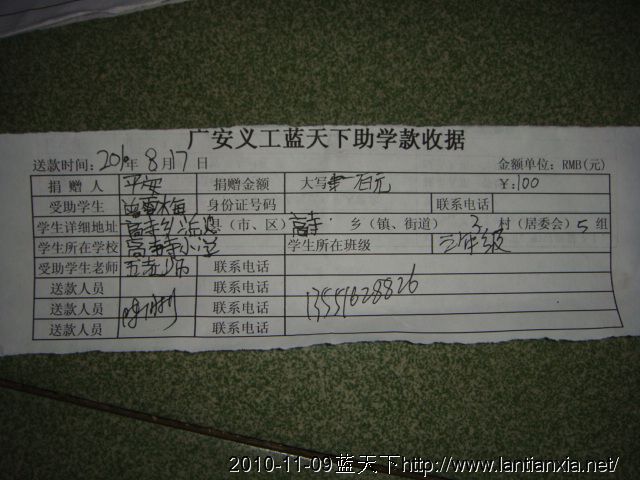 广安义工蓝天下助学款收据
送款时间: 2010年 8月17日 金额单位: RMB(元)
捐赠人 平安 捐赠金额 大写 壹百元 ¥:100
受助学生 身份证号码 联系电话
学生详细地址 县（市、区） 高寺 乡（镇、街道） 3 村（居委会）5 组
学生所在学校 高寺小学 学生所在班级 三年级
受助学生老师 联系电话
送款人员 联系电话
送款人员 联系电话 13551628826
2010-11-09蓝天下http://www.lantianxia.net/